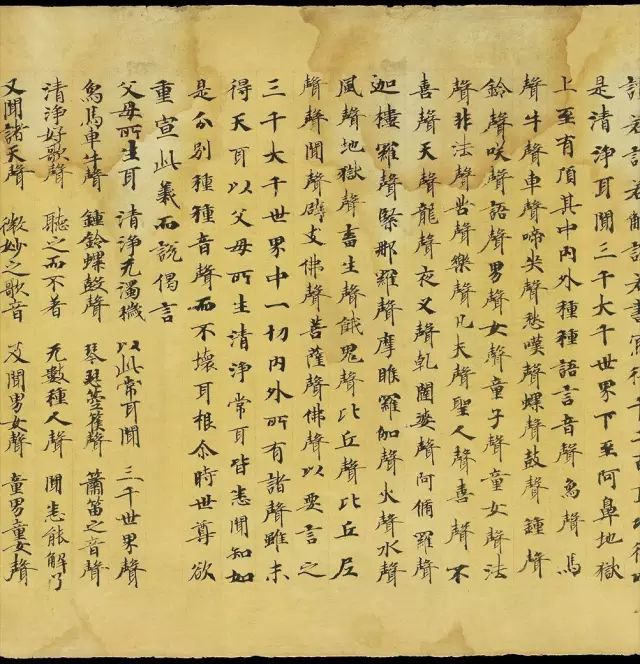 若誦若解說若書寫得千二百耳功德
是清淨耳聞三千大千世界下至阿鼻地獄
上至有頂其中内外種種語言音聲象聲馬
聲牛聲車聲啼哭聲愁嘆聲螺聲鼓聲鍾聲
鈴聲咲聲語聲男聲女聲童子聲童女聲法
聲非法聲苦聲樂聲凡夫聲聖人聲喜聲不
喜聲天聲龍聲夜叉聲乹闥婆聲阿脩羅聲
迦樓羅聲緊那羅聲摩睺羅伽聲火聲水聲
風聲地獄聲畜生聲餓鬼聲比丘聲比丘尼
聲聲聞聲辟支佛聲菩薩聲佛聲以要言之
三千大千世界中一切内外所有諸聲雖未
得天耳以父母所生清淨常耳皆悉聞知如
是分別種種音聲而不壞耳根尒時世尊欲
重宣此義而說偈言
父母所生耳 清淨无濁穢 以此常耳聞 三千世界聲
象馬車牛聲 鍾鈴螺鼓聲 琴瑟箜篌聲 簫笛之音聲
清淨好歌聲 聽之而不著 无數種人聲 聞悉能解了
又聞諸天聲 微妙之歌音 及聞男女聲 童男童女聲